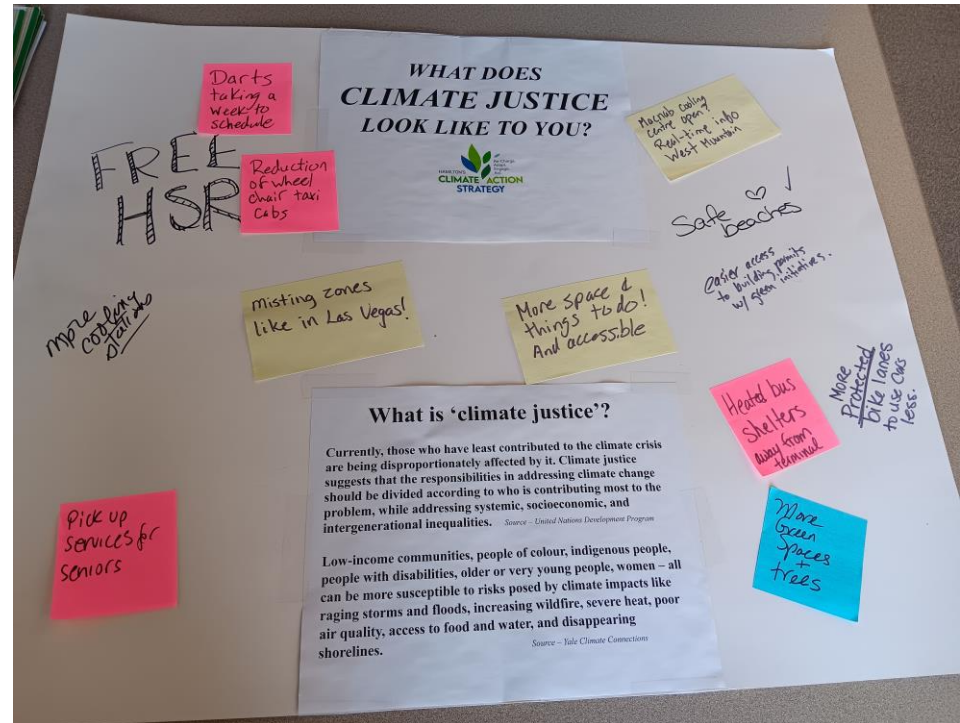 WHAT DOES
CLIMATE JUSTICE
LOOK LIKE TO YOU?
HAMILTON'S
CLIMATE ACTION
STRATEGY
Darts
taking a
week to
schedule
FREE
HSR
Reduction
of wheel
chair taxi
cabs
Macnab cooling
centre open?
Real-time info
West Mountain
Safe
beaches
easier access
to building permits
w/ green initiatives.
more
cooling
stations
misting zones
like in Las Vegas!
More space &
things to do!
And accessible
Heated bus
shelters
away from
terminal
More
Protected
bike lanes
to use cars
less.
What is 'climate justice'?
Currently, those who have least contributed to the climate crisis
are being disproportionately affected by it. Climate justice
suggests that the responsibilities in addressing climate change
should be divided according to who is contributing most to the
problem, while addressing systemic, socioeconomic, and
intergenerational inequalities. Source – United Nations Development Program
Low-income communities, people of colour, indigenous people,
people with disabilities, older or very young people, women – all
can be more susceptible to risks posed by climate impacts like
raging storms and floods, increasing wildfire, severe heat, poor
air quality, access to food and water, and disappearing
shorelines.
Source – Yale Climate Connections
Pick up
services for
seniors
More
Green
Spaces
+
trees